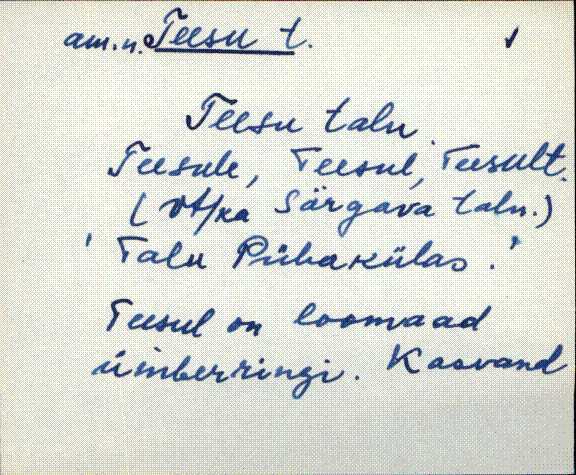 am.n. Teesu t.
Teesu talu.
Teesule, Teesul, Teesult.
(vt/ka Särgava talu.)
'Talu Pühakülas.'
Teesul on loomaad
ümberringi. Kasvand